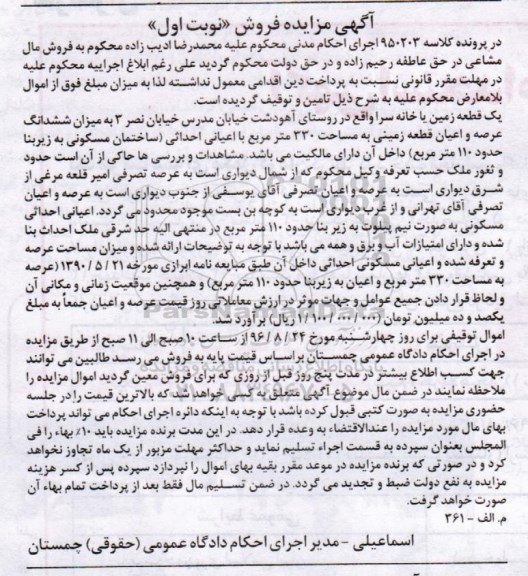 آگهی مزایده فروش «نوبت اول»
در پرونده کلاسه ۹۵۰۲۰۳ اجرای احکام مدنی محکوم علیه محمدرضا ادیب زاده محکوم به فروش مال
مشاعی در حق عاطفه رحیم زاده و در حق دولت محکوم گردید علی رغم ابلاغ اجراییه محکوم علیه
در مهلت مقرر قانونی نسبت به پرداخت دین اقدامی معمول نداشته لذا به میزان مبلغ فوق از اموال
بلامعارض محکوم علیه به شرح ذیل تامین و توقیف گردیده است.
یک قطعه زمین با خانه سرا واقع در روستای آهودشت خیابان مدرس خیابان نصر ۳ به میزان ششدانگ
عرصه و اعیان قطعه زمینی به مساحت ۳۳۰ متر مربع با اعیانی احداثی (ساختمان مسکونی به زیربنا
حدود ۱۱۰ متر مربع) داخل آن دارای مالکیت می باشد. مشاهدات و بررسی ها حاکی از آن است حدود
و ثغور ملک حسب تعرفه وکیل محکوم که از شمال دیواری است به عرصه تصرفی امیر قلعه مرغی از
شرق دیواری است به عرصه و اعیان تصرفی آقای یوسفی از جنوب دیواری است به عرصه و اعیان
تصرفی آقای تهرانی و از غرب دیواری است به کوچه بن بست موجود محدود می گردد. اعیانی احداثی
مسکونی به صورت نیم پیلوت به زیر بنا حدود ۱۱۰ متر مربع در منتهی الیه حد شرقی ملک احداث بنا
شده و دارای امتیازات آب و برق و همه می باشد با توجه به توضیحات ارائه شده و میزان مساحت عرصه
و تعرفه شده و اعیانی مسکونی احداثی داخل آن طبق مبایعه نامه ابرازی مورخه ۲۱ / ۵ / ۱۳۹۰ (عرصه
به مساحت ۳۳۰ متر مربع و اعیان به زیربنا حدود ۱۱۰ متر مربع) و همچنین موقعیت زمانی و مکانی آن
و لحاظ قرار دادن جمیع عوامل و جهات موثر در ارزش معاملاتی روز قیمت عرصه و اعیان جمعاً به مبلغ
یکصد و ده میلیون تومان (۱/۱۰۰/۰۰۰/۰۰۰ ریال) برآورد شد.
اموال توقیفی برای روز چهارشنبه مورخ ۲۴ / ۸ / ۹۶ از ساعت ۱۰ صبح الی ۱۱ صبح از طریق مزایده
در اجرای احکام دادگاه عمومی چمستان براساس قیمت پایه به فروش می رسد طالبین می توانند
جهت کسب اطلاع بیشتر در مدت پنج روز قبل از روزی که برای فروش معین گردید اموال مزایده را
ملاحظه نمایند در ضمن مال موضوع آگهی متعلق به کسی خواهد شد که بالاترین قیمت را در جلسه
حضوری مزایده به صورت کتبی قبول کرده باشد با توجه به اینکه دائره اجرای احکام می تواند پرداخت
بهای مال مورد مزایده را عندالاقتضاء به وعده قرار دهد. در این مدت برنده مزایده باید ۱۰٪ بهاء را فی
المجلس بعنوان سپرده به قسمت اجراء تسلیم نماید و حداکثر مهلت مزبور از یک ماه تجاوز نخواهد
کرد و در صورتی که برنده مزایده در موعد مقرر بقیه بهای اموال را نپردازد سپرده پس از کسر هزینه
مزایده به نفع دولت ضبط و تجدید می گردد. در ضمن تسلیم مال فقط بعد از پرداخت تمام بهاء آن
صورت خواهد گرفت.
م. الف - ۳۶۱
اسماعیلی - مدیر اجرای احکام دادگاه عمومی (حقوقی) چمستان